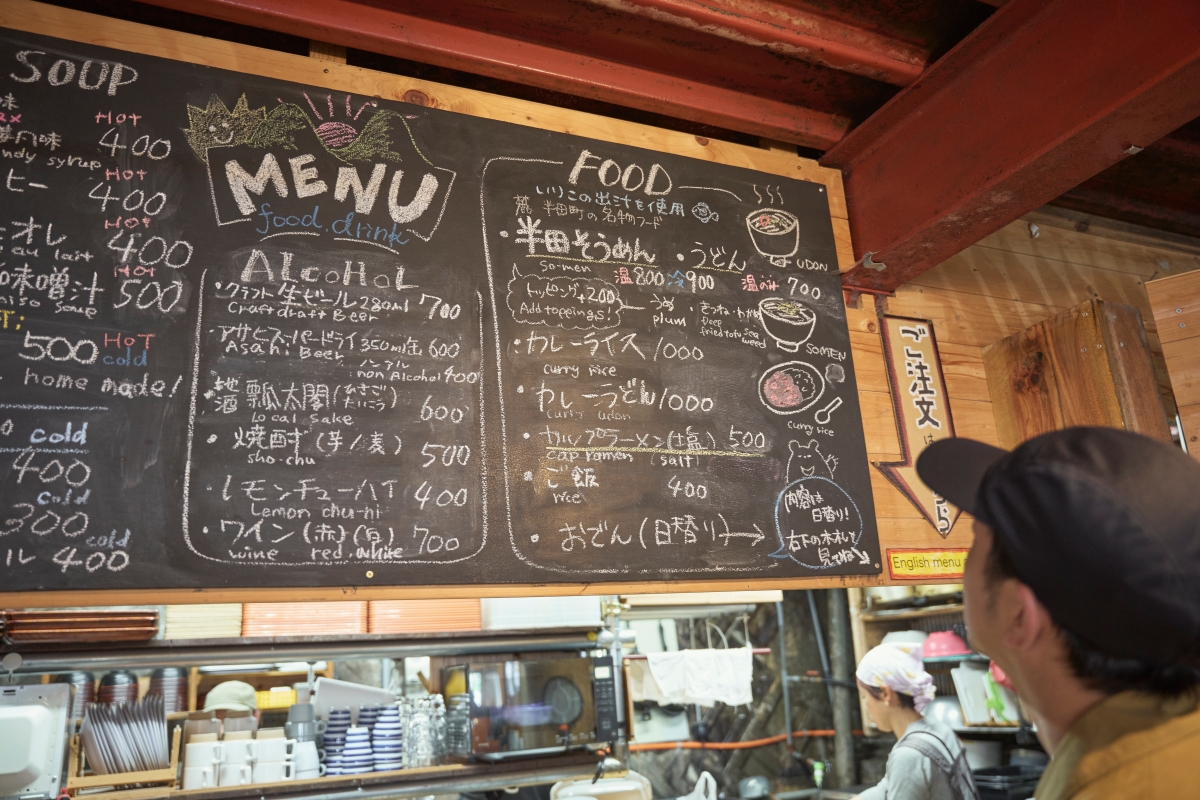 SOUP
味
Hot
400
ndy syrup
Hot
ヒー
400
Hot
オレ
400
au lait
Hot
味噌汁
500
soup
500
HOT
cold
home made!
cold
400
cold
300
cold
ル 400
MENU
food.drink
ALCOHOL
・クラフト生ビール 280ml 700
Craft draft Beer
・アサヒスーパードライ 350ml缶 600
Asahi Beer
ノンアル
non Alcohol 400
・地酒 瓢太閤(ひさごたいこう) 600
local sake
・焼酎(芋/麦) 500
sho-chu
・レモンチューハイ 400
Lemon chu-hi
・ワイン(赤)(白) 700
wine red.white
FOOD
いりこの出汁を使用
半田町の名物フード
・半田そうめん
so-men
温800 冷900
・うどん
温のみ 700
トッピング+200
Add toppings!
うめ
plum
きつね・わかめ
Deep fried tofu seaweed
・カレーライス 1000
curry rice
・カレーうどん 1000
curry udon
・カップラーメン(塩) 500
cap ramen (salt)
・ご飯 400
rice
・おでん(日替り)→
UDON
SOMEN
curry rice
内容は
日替り!
右下の木札を
見てね
ご注文は
こちら
English menu